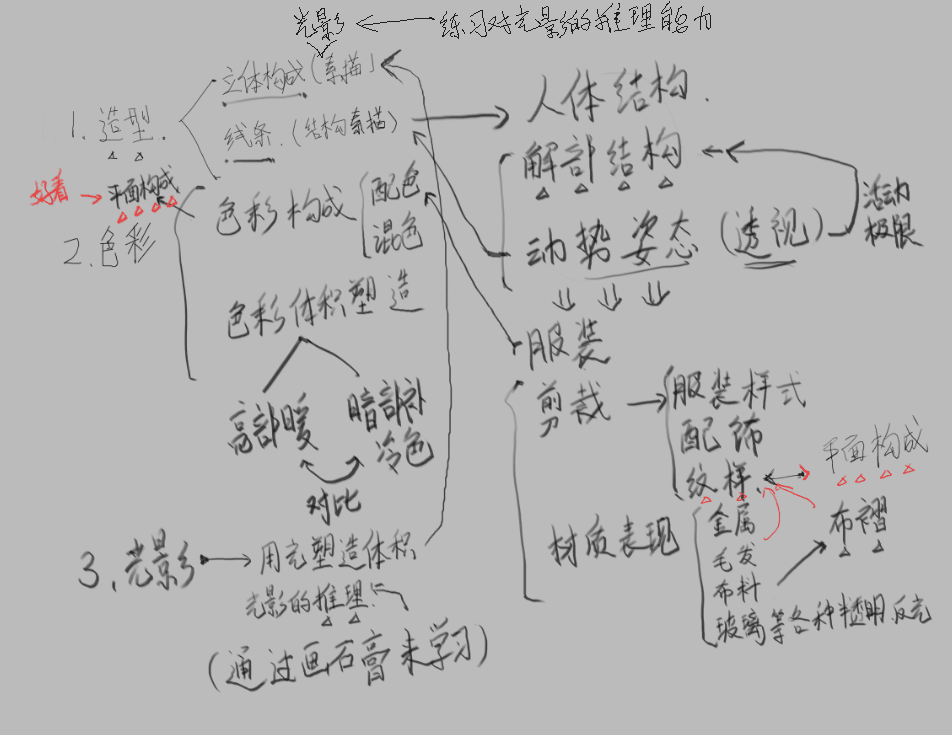 光影 ← 练习对光影的推理能力
1. 造型.
立体构成(素描)
线条.(结构素描)
好看 → 平面构成
2. 色彩
色彩构成
配色
混色
色彩体积塑造
高部暖
暗部补
冷色
对比
3. 光影 → 用光塑造体积
光影的推理.
(通过画石膏来学习)
人体结构.
解剖结构
动势姿态(透视)
活动
极限
服装
剪裁 → 服装样式
配饰
纹样.
平面构成
材质表现
金属
毛发
布料
布褶
玻璃等各种半透明.反光